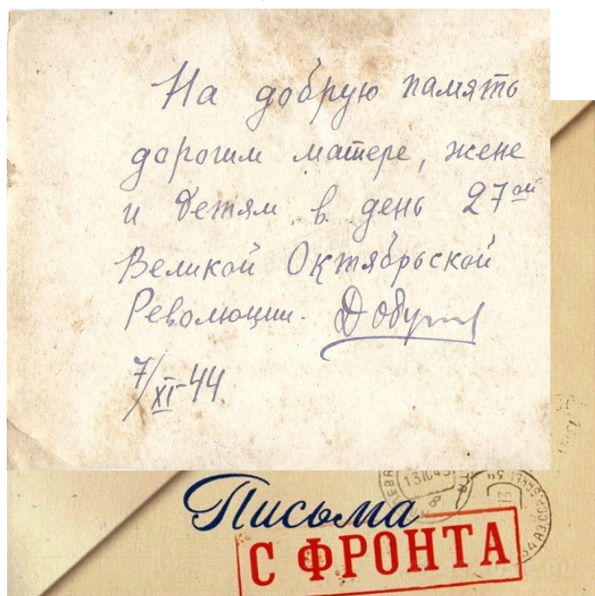 На добрую память
дорогим матере, жене
и детям в день 27ой
Великой Октябрьской
Революции.
7/XI-44
Письма
С ФРОНТА